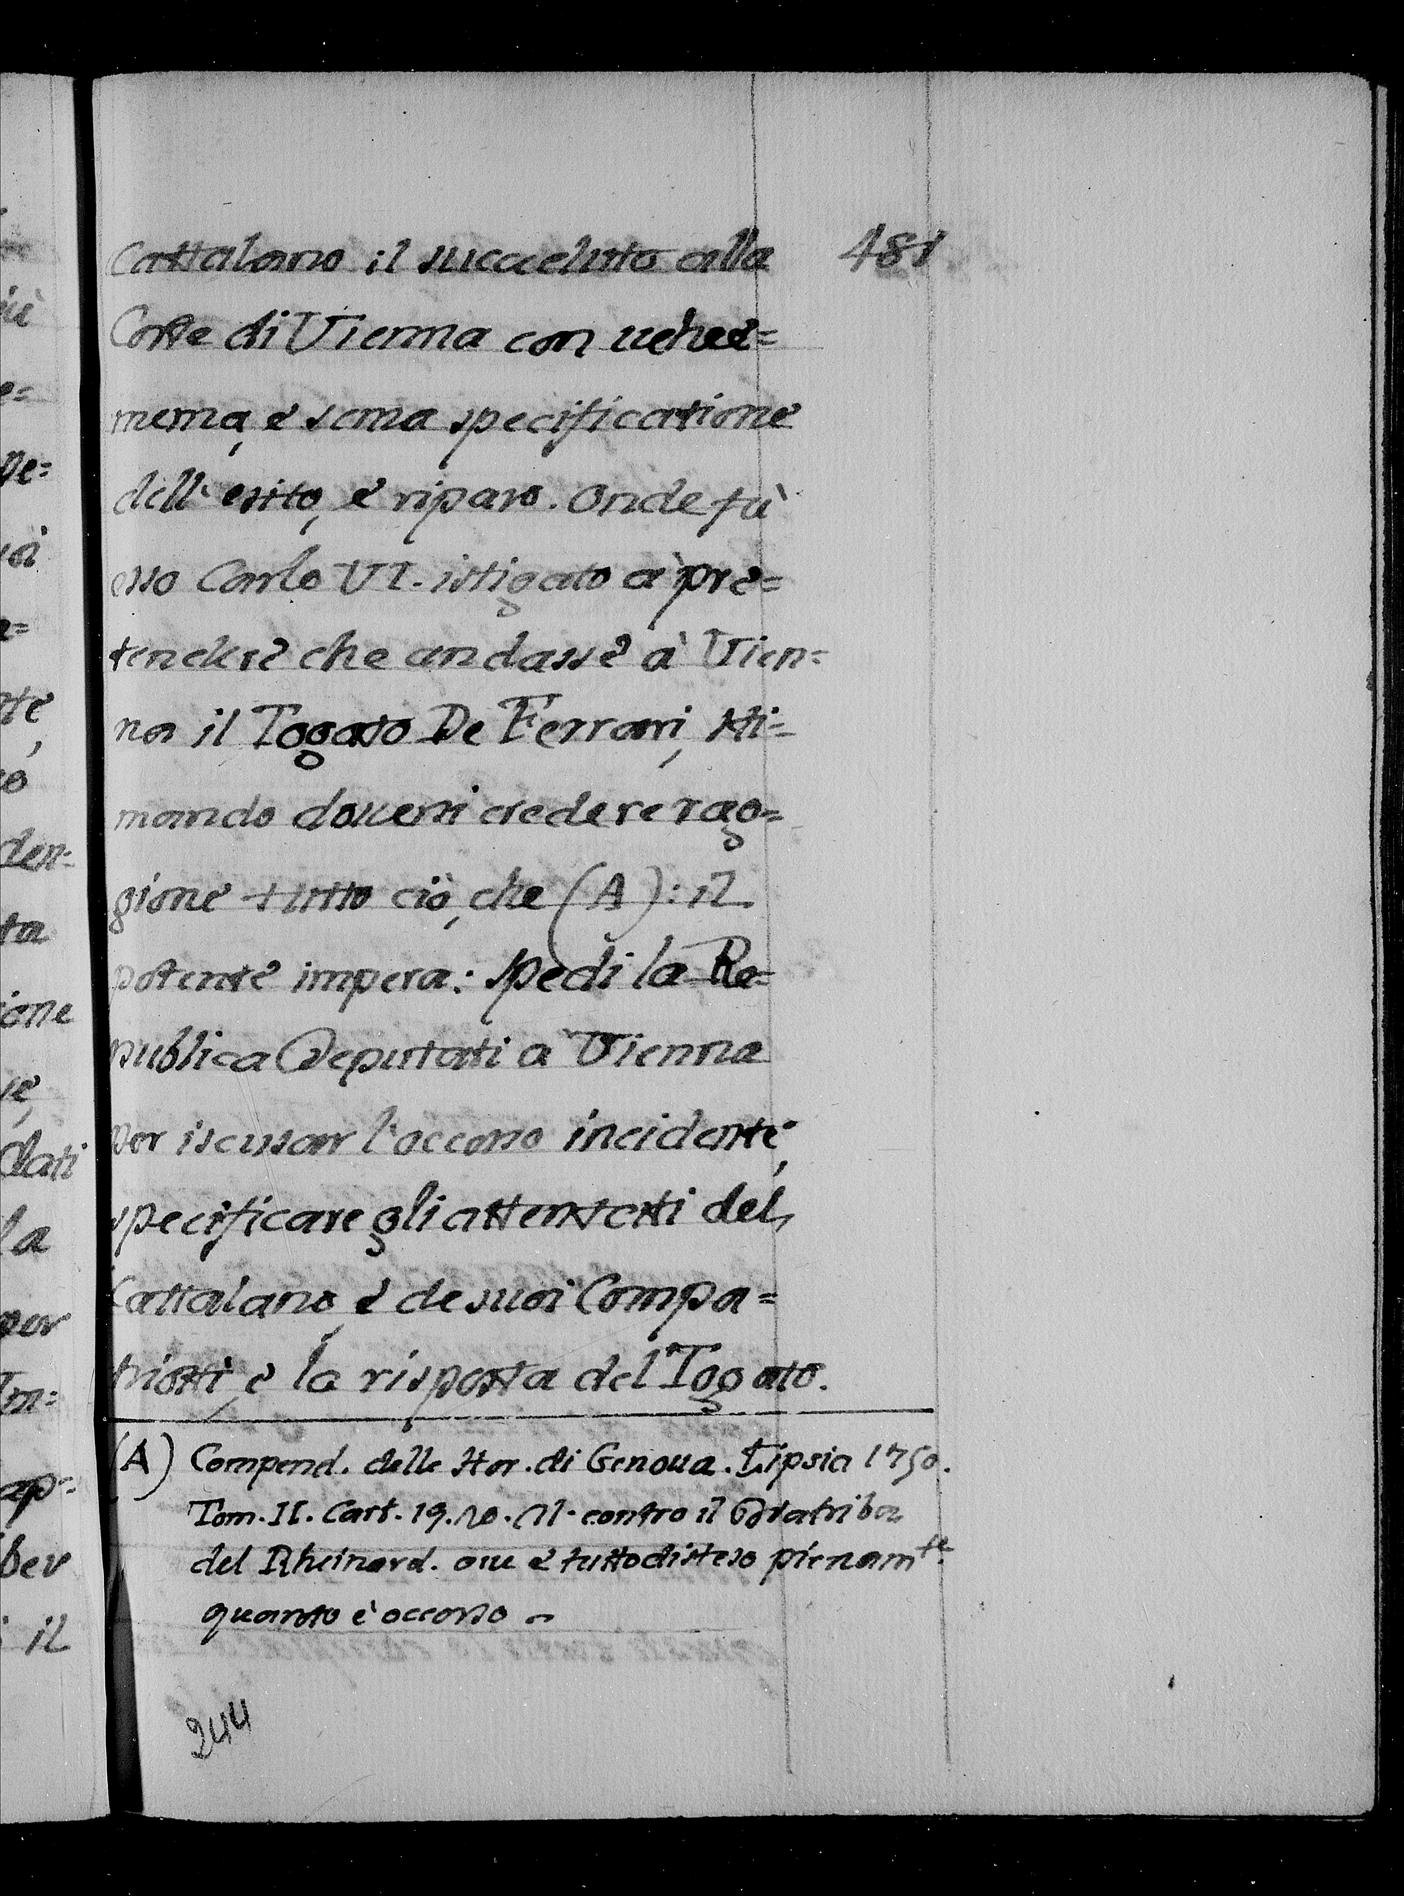 Cattalano il succeduto alla 481
Corte di Vienna con uehe=
menza, e senza specificatione
dell'esito, e riparo. Onde fù
esso Carlo VI. istigato à pre=
tendere che andasse à Vien=
na il Togato De Ferrari, sti=
mando douersi credere rag=
gione tutto ciò, che (A): il
potente impera: spedi la Re=
publica Deputati a Vienna
per iscusar l'occorso incidente,
specificare gli attentati del
Cattalano, e de suoi Compa=
triotti, e la risposta del Togato.
(A) Compend. delle Stor. di Genoua. Lipsia 1750.
Tom. II. Cart. 19. 20. 21. contro il Diatriba
del Rheinard. oue è tutto disteso pienamte
quanto è occorso
244
iù
e=
ne=
oi
a=
tte,
co
den=
ta
ione
ue,
dati
la
per
Im=
ap=
ber
il